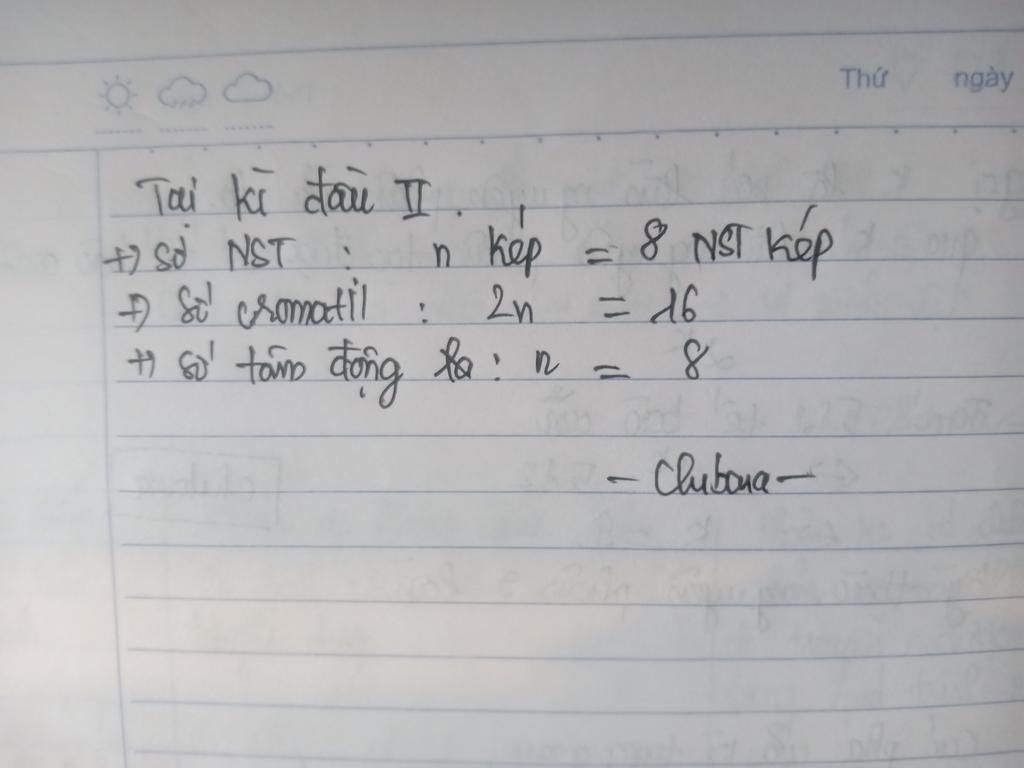 Thứ ngày
Tại kì đầu II.
+) Số NST : n kép = 8 NST kép
+) Số cromatit : 2n = 16
+) Số tâm động là : n = 8
- Chubona -